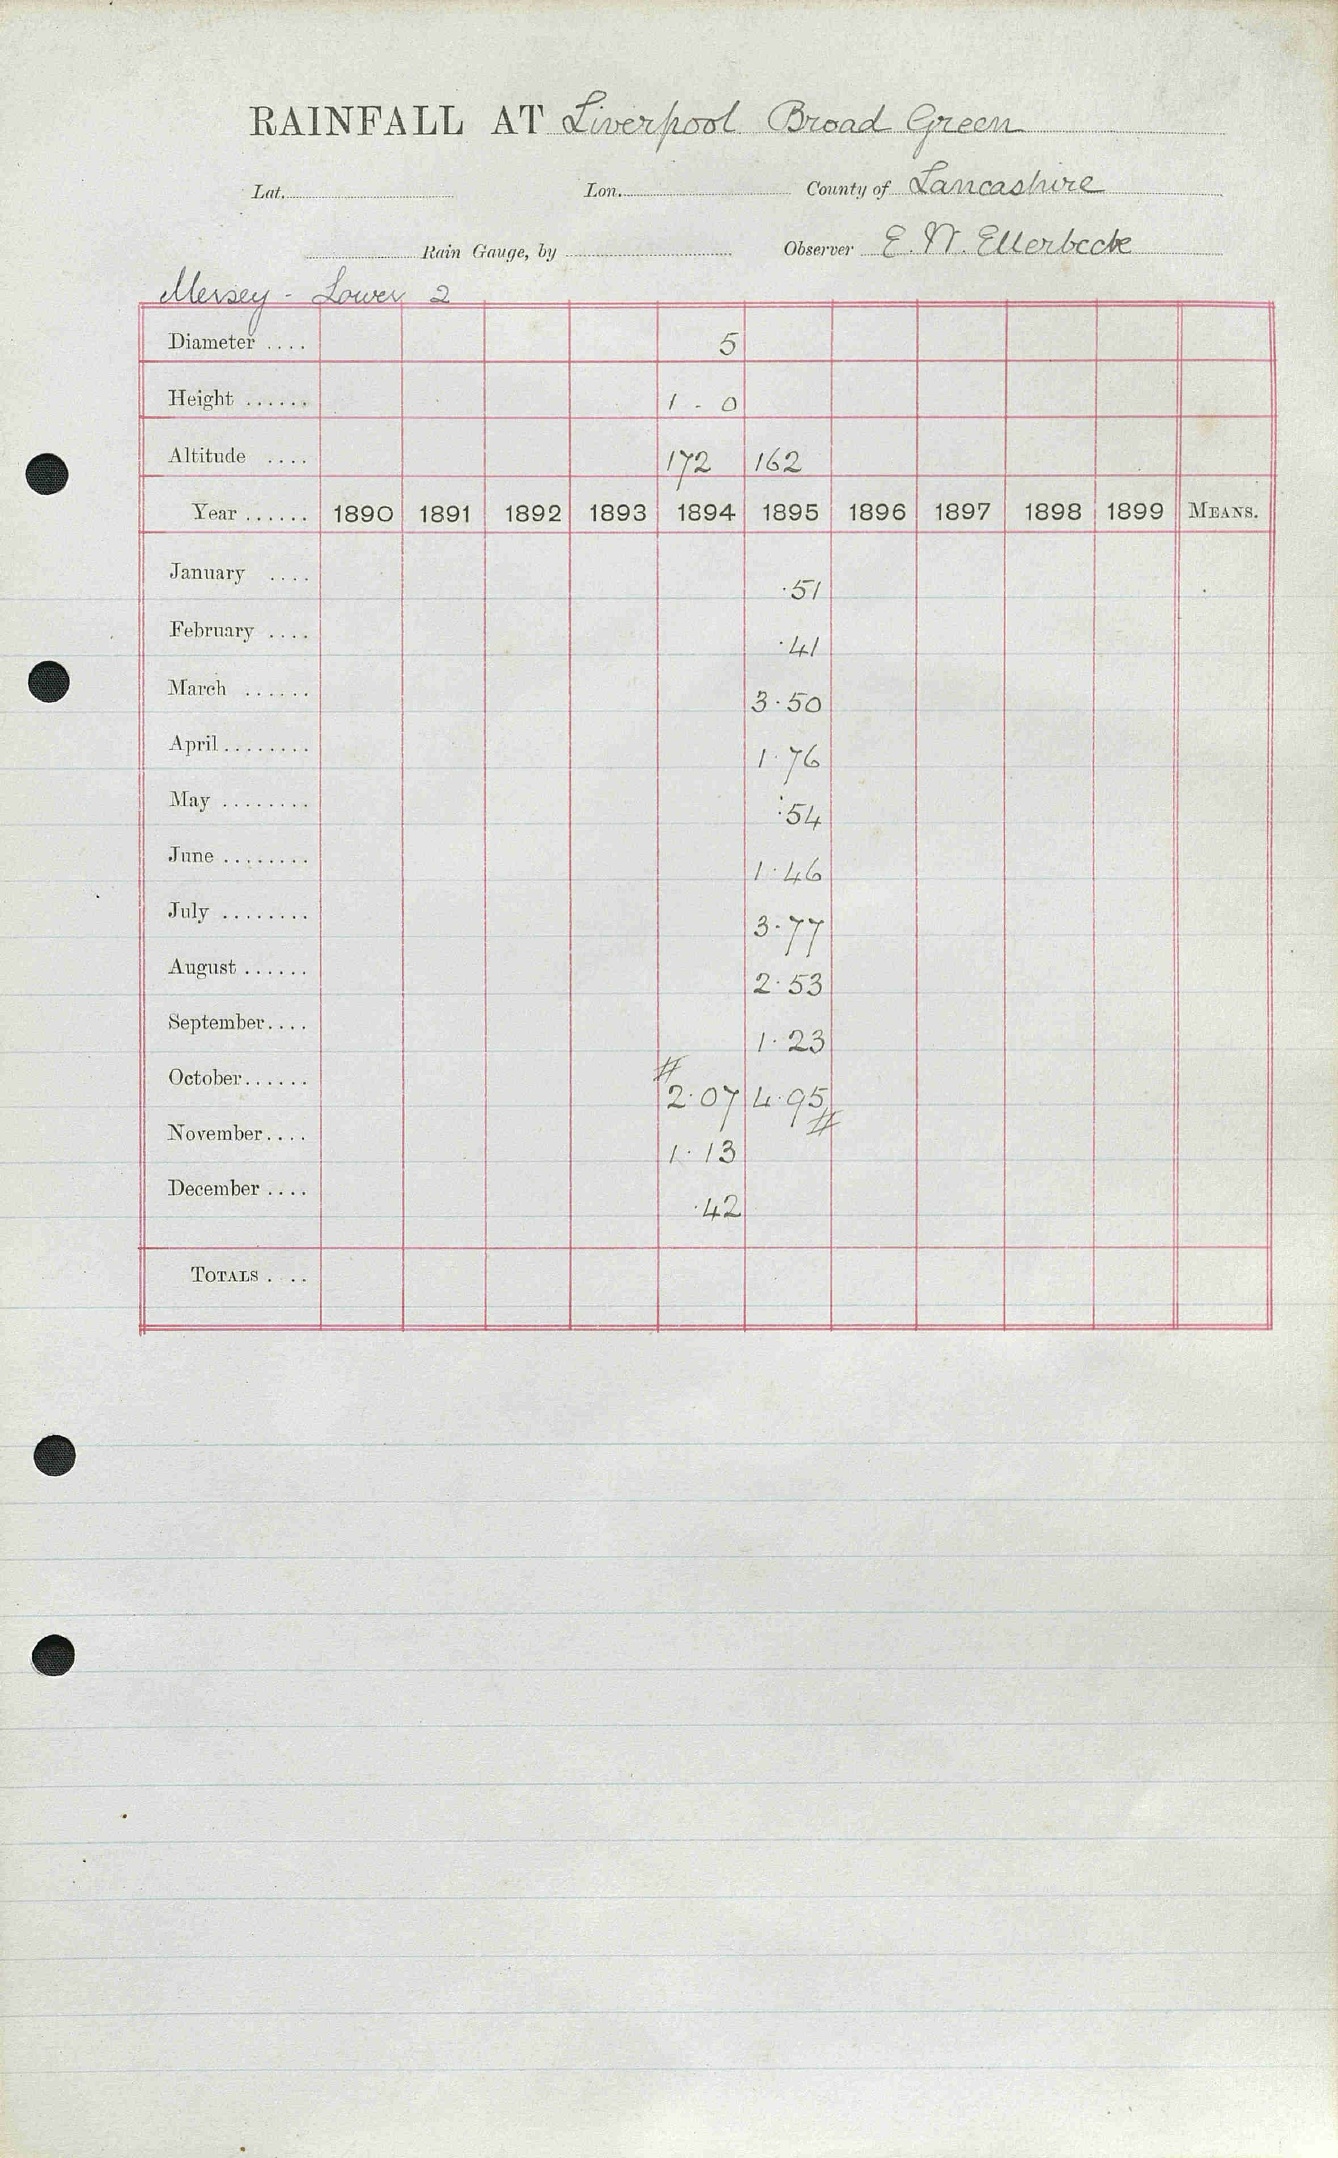 RAINFALL AT Liverpool Broad Green
Lat. Lon. County of Lancashire
Rain Gauge, by Observer E. W. Ellerbeck
Mersey - Lower 2
Diameter .... 5
Height ...... 1 - 0
Altitude .... 172 162
Year ...... 1890 1891 1892 1893 1894 1895 1896 1897 1898 1899 MEANS.
January .... ·51
February .... ·41
March ...... 3·50
April ........ 1·76
May ........ ·54
June ........ 1·46
July ........ 3·77
August ...... 2·53
September.... 1·23
October...... # 2·07 4·95 #
November.... 1·13
December .... ·42
TOTALS . ..